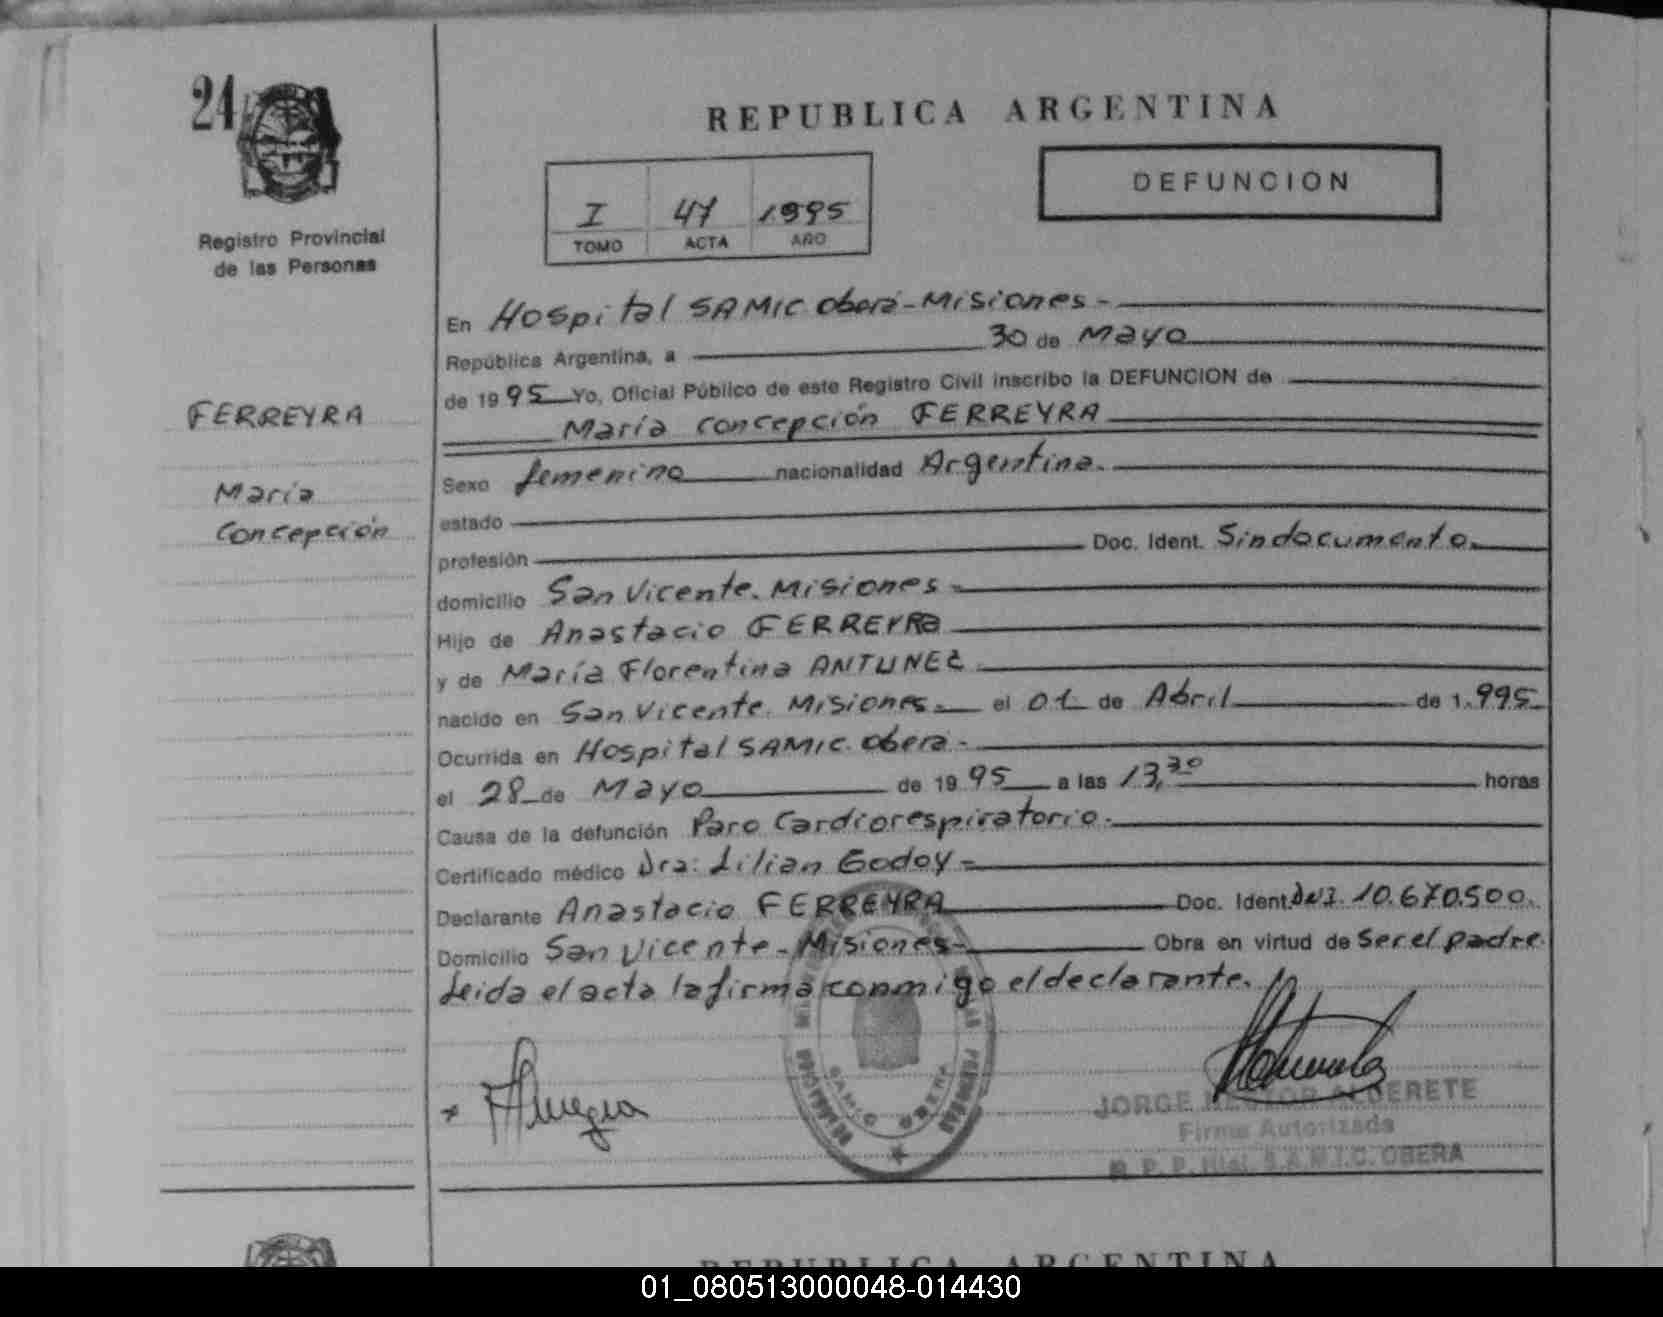 24
Registro Provincial
de las Personas
FERREYRA
María
Concepción
REPUBLICA ARGENTINA
I 47 1995
TOMO ACTA AÑO
DEFUNCION
En Hospital SAMIC Oberá-Misiones-
República Argentina, a 30 de Mayo
de 1995 Yo, Oficial Público de este Registro Civil inscribo la DEFUNCION de
María Concepción FERREYRA
Sexo femenino nacionalidad Argentina.
estado
profesión Doc. Ident. Sindocumento.
domicilio San Vicente. Misiones-
Hijo de Anastacio FERREYRA
y de María Florentina ANTUNEZ
nacido en San Vicente. Misiones- el 01 de Abril de 1.995
Ocurrida en Hospital SAMIC. Oberá-
el 28 de Mayo de 1995 a las 13,30 horas
Causa de la defunción Paro Cardiorespiratorio.
Certificado médico Dra: Lilian Godoy-
Declarante Anastacio FERREYRA Doc. Ident. 10.670.500.
Domicilio San Vicente-Misiones- Obra en virtud de Ser el padre
Leida el acta la firma conmigo el declarante.
SAMIC OBERA
JORGE NESTOR ALDERETE
Firma Autorizada
R. P. P. Htal. S.A.M.I.C. OBERA
REPUBLICA ARGENTINA
01_080513000048-014430